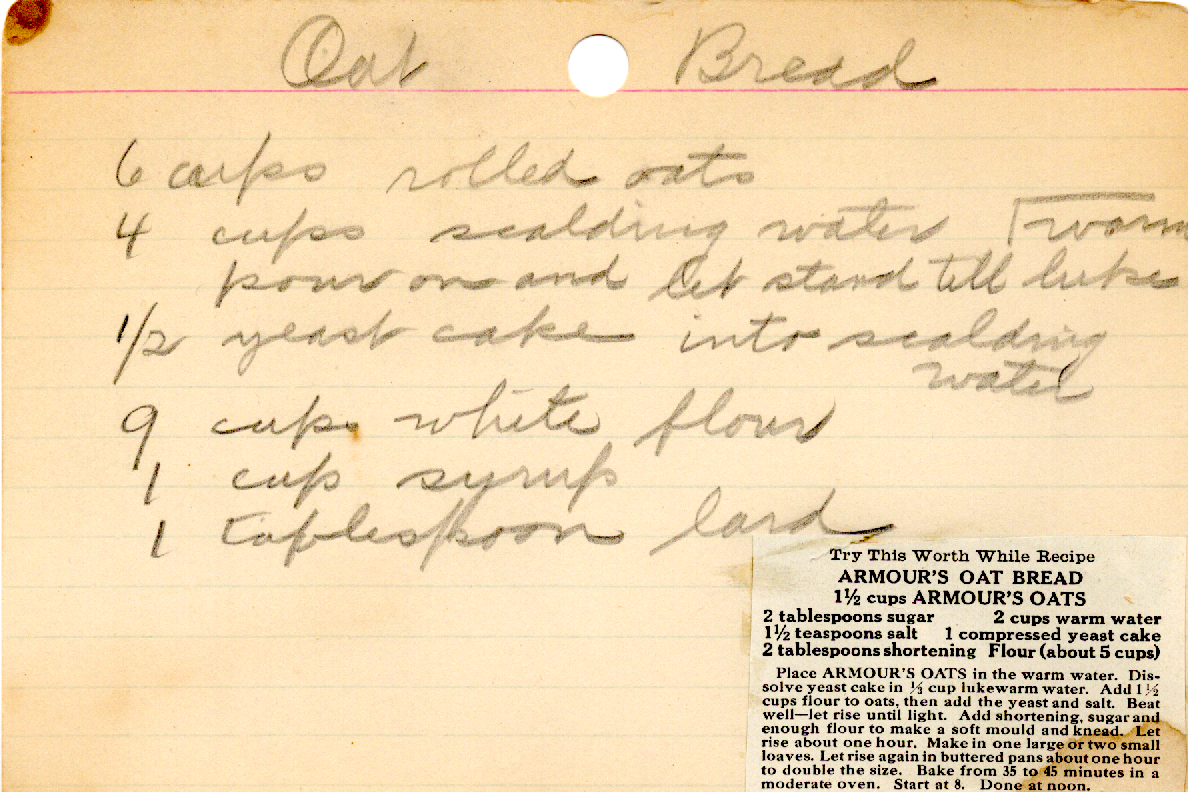 Oat Bread
6 cups rolled oats
4 cups scalding water warm
pour on and let stand till luke
1/2 yeast cake into scalding
water
9 cups white flour
1 cup syrup
1 tablespoon lard
Try This Worth While Recipe
ARMOUR'S OAT BREAD
1½ cups ARMOUR'S OATS
2 tablespoons sugar 2 cups warm water
1½ teaspoons salt 1 compressed yeast cake
2 tablespoons shortening Flour (about 5 cups)
Place ARMOUR'S OATS in the warm water. Dis-
solve yeast cake in ½ cup lukewarm water. Add 1½
cups flour to oats, then add the yeast and salt. Beat
well—let rise until light. Add shortening, sugar and
enough flour to make a soft mould and knead. Let
rise about one hour. Make in one large or two small
loaves. Let rise again in buttered pans about one hour
to double the size. Bake from 35 to 45 minutes in a
moderate oven. Start at 8. Done at noon.